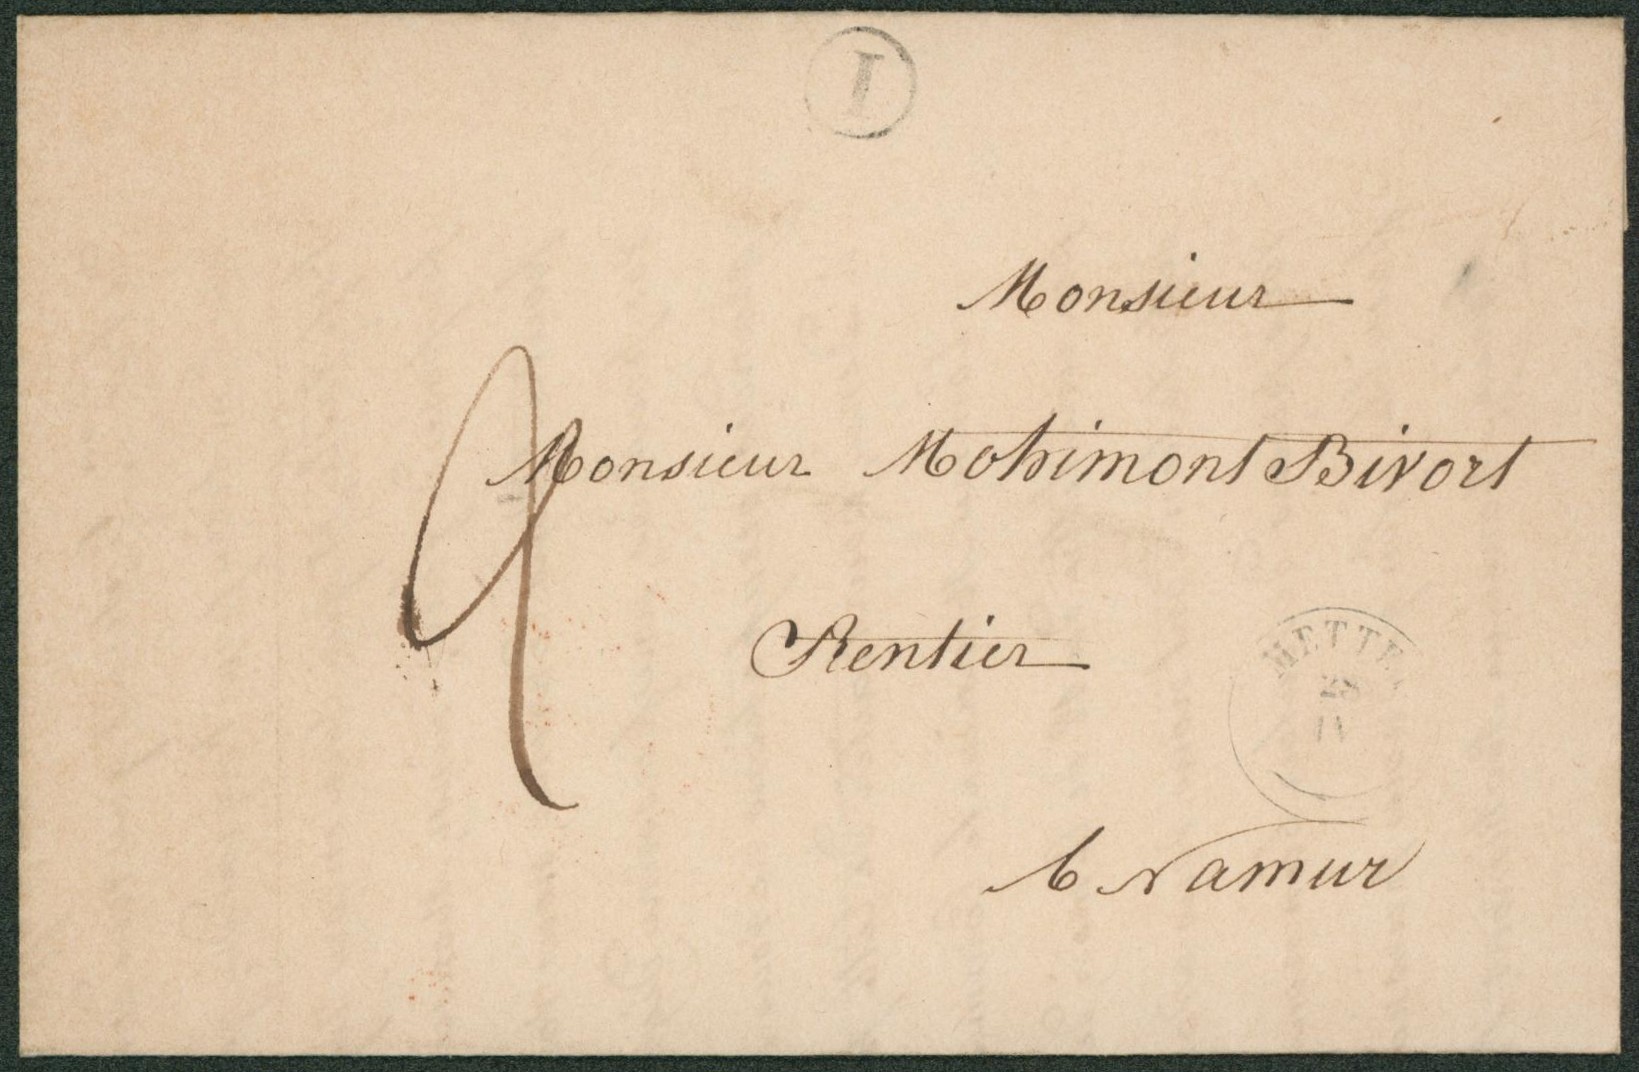 I
Monsieur
Monsieur Mohimont Bivort
Rentier
METTE
28
IV
à Namur
2